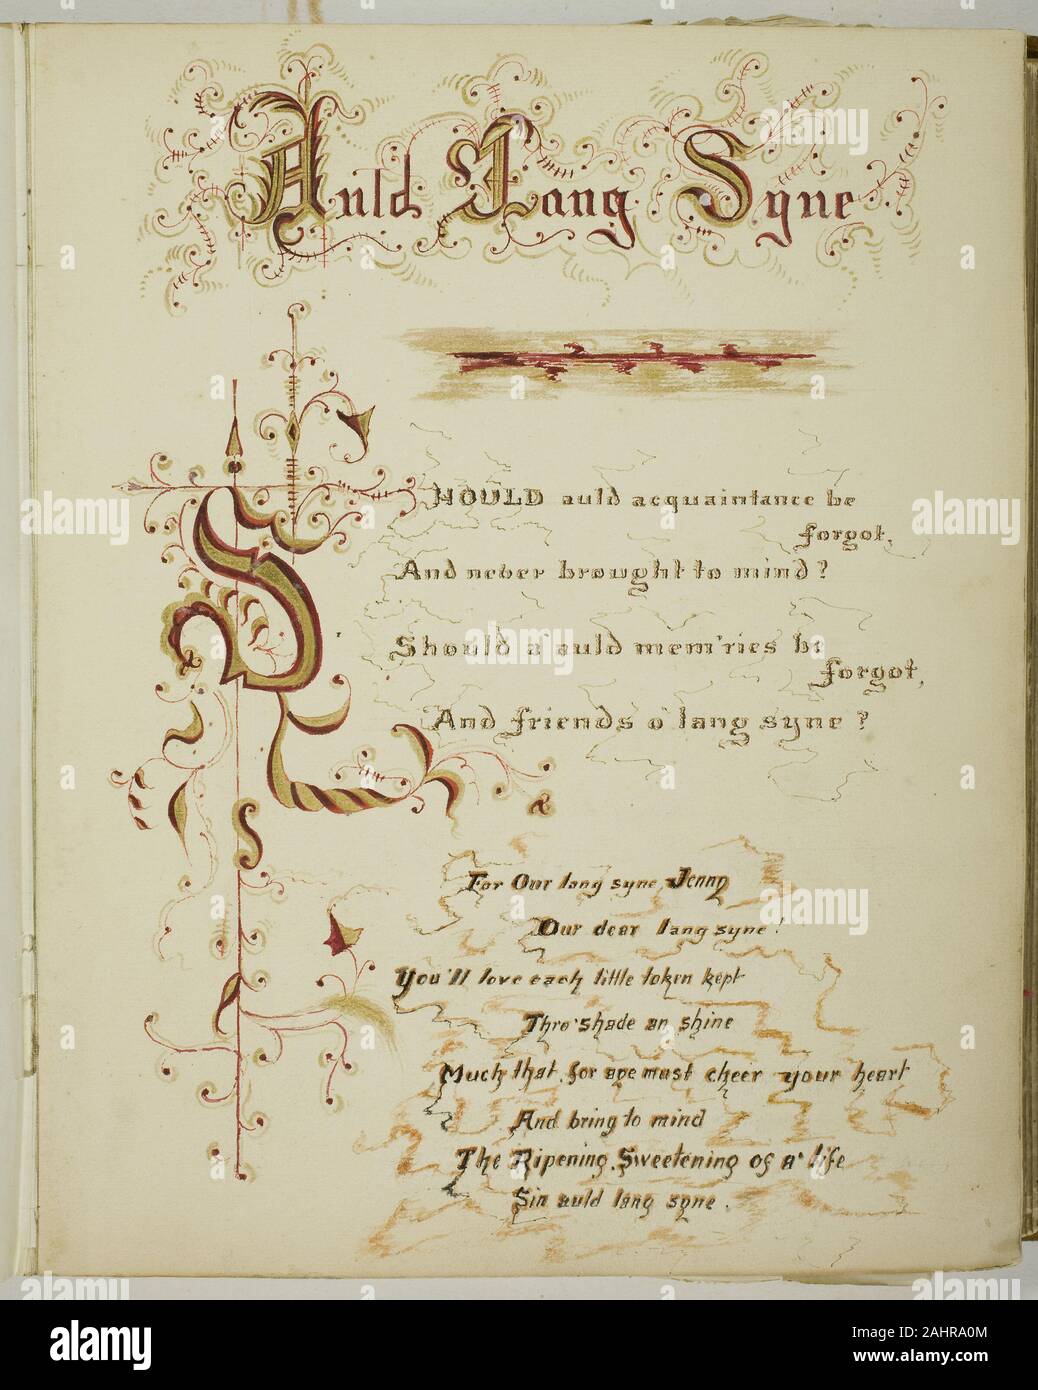 Auld Lang Syne
SHOULD auld acquaintance be
forgot,
And never brought to mind?
Should a' auld mem'ries be
forgot,
And friends o' lang syne?
&
For Our lang syne, Jenny
Our dear lang syne!
You'll love each little token kept
Thro' shade an shine
Much that, for aye must cheer your heart
And bring to mind
The Ripening, Sweetening of a' life
Sin auld lang syne.
alamy
Image ID: 2AHRA0M
www.alamy.com